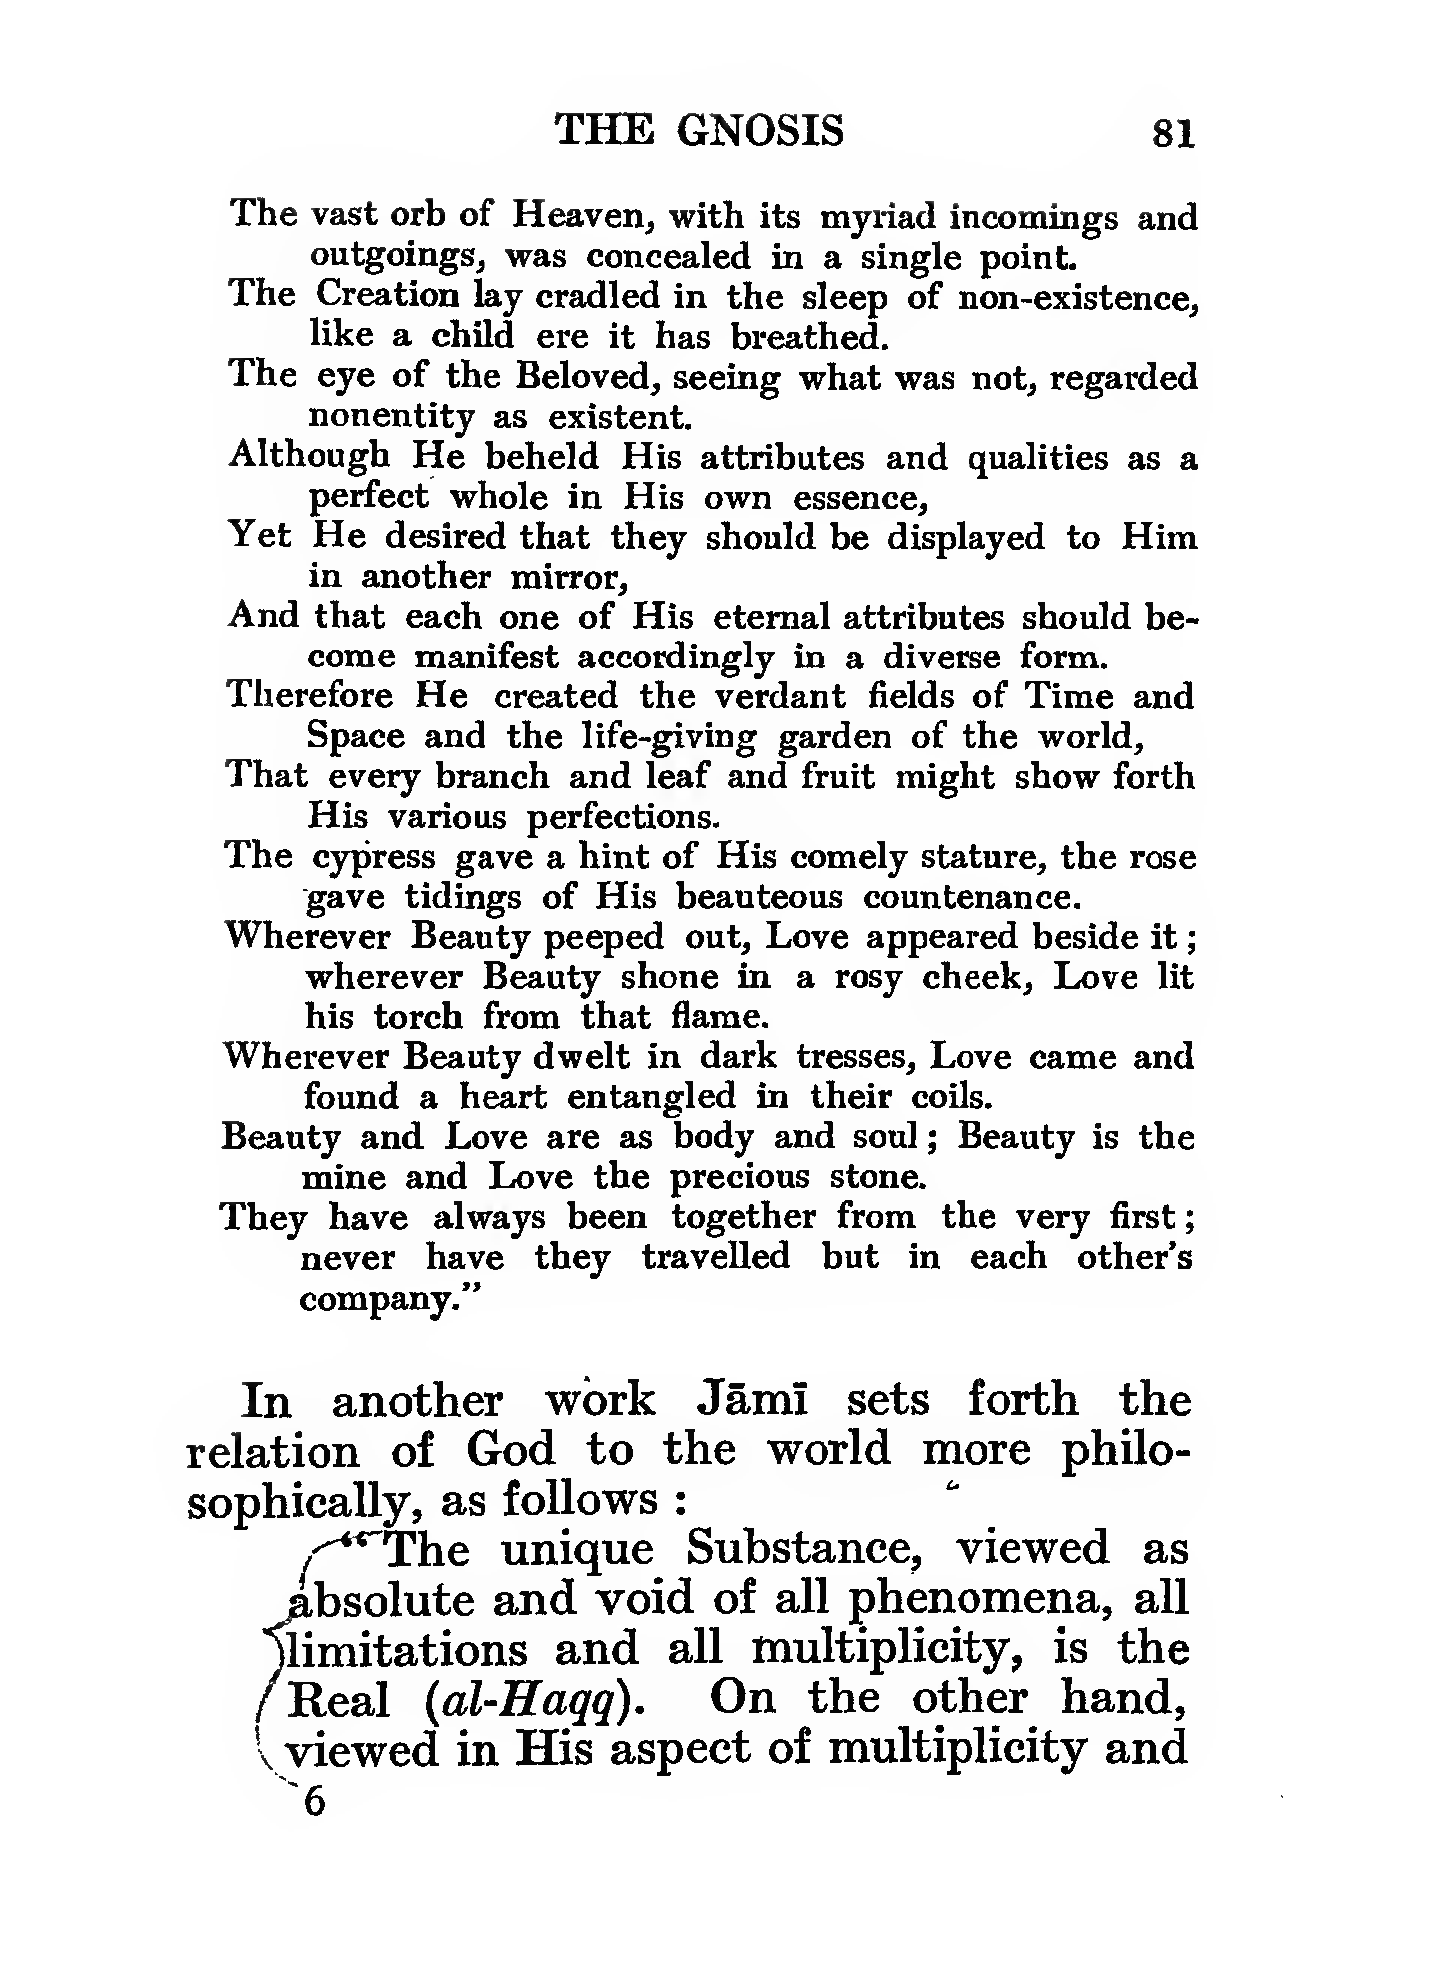 THE GNOSIS 81
The vast orb of Heaven, with its myriad incomings and
outgoings, was concealed in a single point.
The Creation lay cradled in the sleep of non-existence,
like a child ere it has breathed.
The eye of the Beloved, seeing what was not, regarded
nonentity as existent.
Although He beheld His attributes and qualities as a
perfect whole in His own essence,
Yet He desired that they should be displayed to Him
in another mirror,
And that each one of His eternal attributes should be-
come manifest accordingly in a diverse form.
Therefore He created the verdant fields of Time and
Space and the life-giving garden of the world,
That every branch and leaf and fruit might show forth
His various perfections.
The cypress gave a hint of His comely stature, the rose
gave tidings of His beauteous countenance.
Wherever Beauty peeped out, Love appeared beside it ;
wherever Beauty shone in a rosy cheek, Love lit
his torch from that flame.
Wherever Beauty dwelt in dark tresses, Love came and
found a heart entangled in their coils.
Beauty and Love are as body and soul ; Beauty is the
mine and Love the precious stone.
They have always been together from the very first ;
never have they travelled but in each other's
company."
In another work Jāmī sets forth the
relation of God to the world more philo-
sophically, as follows :
"The unique Substance, viewed as
absolute and void of all phenomena, all
limitations and all multiplicity, is the
Real (al-Haqq). On the other hand,
viewed in His aspect of multiplicity and
6